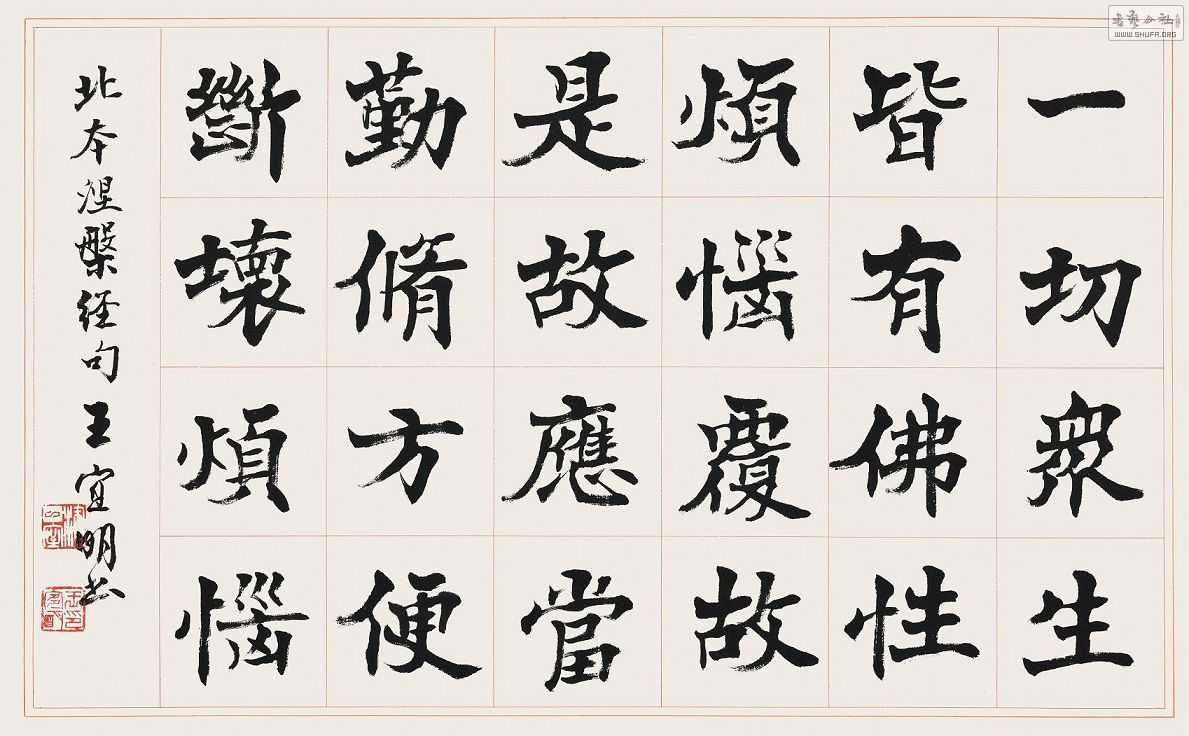 一切眾生
皆有佛性
煩惱覆故
是故應當
勤脩方便
斷壞煩惱
北本涅槃经句王宜明书
書藝公社
WWW.SHUFA.ORG